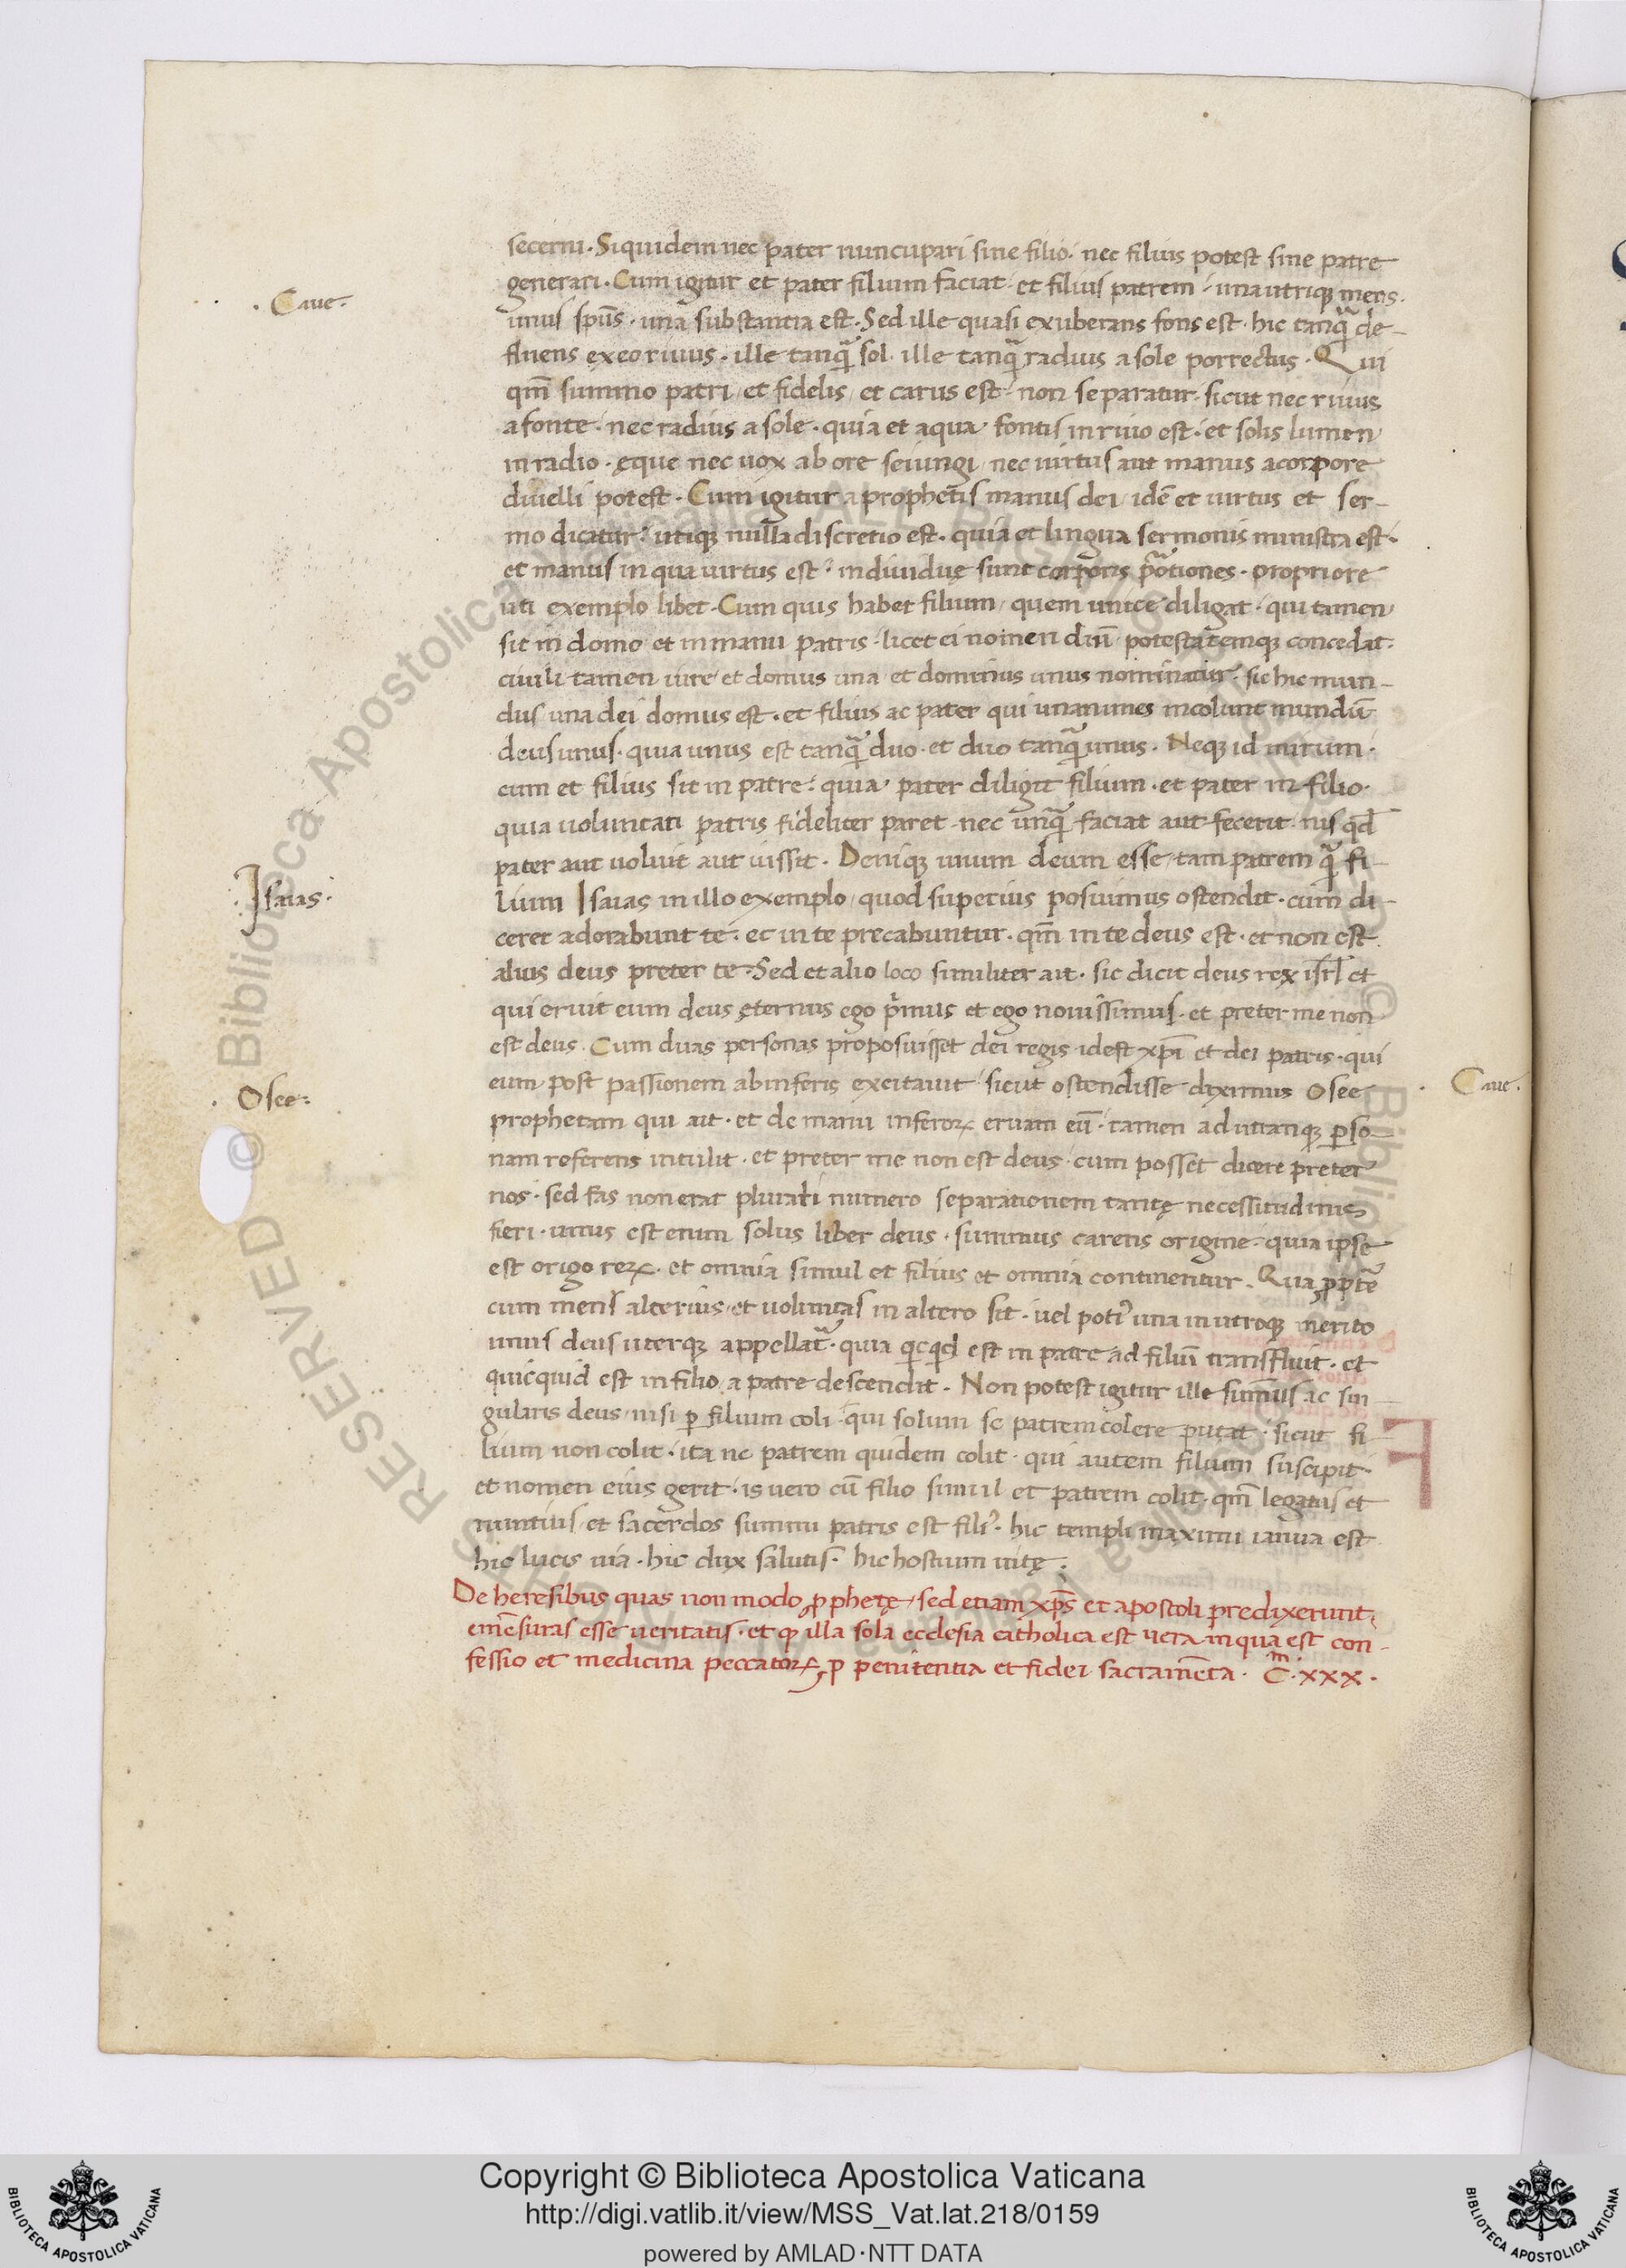 secerni. Siquidem nec pater nuncupari sine filio. nec filius potest sine patre
generari. Cum igitur et pater filium faciat. et filius patrem. una utriq; mens.
. Caue.
unus sp̃us. una substantia est. Sed ille quasi exuberans fons est. hic tanq̃ de-
fluens ex eo riuus. ille tanq̃ sol. ille tanq̃ radius a sole porrectus. Qui
qm̃ summo patri et fidelis et carus est. non separatur. sicut nec riuus
a fonte. nec radius a sole. quia et aqua fontis in riuo est. et solis lumen
in radio. ęque nec uox ab ore seiungi nec uirtus aut manus a corpore
diuelli potest. Cum igitur a prophetis manus dei idẽ et uirtus et ser-
mo dicatur. utiq; nulla discretio est. quia et lingua sermonis ministra est.
et manus in qua uirtus est. indiuiduę sunt corporis portiones. propriore
uti exemplo libet. Cum quis habet filium quem unice diligat. qui tamen
sit in domo et in manu patris. licet ei nomen dñi potestatemq; concedat.
ciuili tamen iure et domus una et dominus unus nominatur. sic hic mun-
dus una dei domus est. et filius ac pater qui unanimes incolunt mundũ
deus unus. quia unus est tanq̃ duo. et duo tanq̃ unus. Neq; id mirum.
cum et filius sit in patre. quia pater diligit filium. et pater in filio.
quia uoluntati patris fideliter paret. nec unq̃ faciat aut fecerit. nisi qd̃
pater aut uoluit aut iussit. Deniq; unum deum esse tam patrem q̃ fi-
Isaias.
lium Isaias in illo exemplo quod superius posuimus ostendit. cum di-
ceret adorabunt te. et in te precabuntur. qm̃ in te deus est. et non est
alius deus preter te. Sed et alio loco similiter ait. sic dicit deus rex isrl̃ et
qui eruit eum deus ęternus ego primus et ego nouissimus. et preter me non
est deus. Cum duas personas proposuisset dei regis idest xp̃i et dei patris. qui
eum post passionem ab inferis excitauit sicut ostendisse diximus Osee
. Caue.
. Osee.
prophetam qui ait. et de manu inferoꝝ eruam eũ. tamen ad utranq; ꝑso-
nam referens intulit. et preter me non est deus. cum posset dicere preter
nos. sed fas non erat plurali numero separationem tantę necessitudinis
fieri. unus est enim solus liber deus. summus carens origine. quia ipse
est origo reꝝ. et omnia simul et filius et omnia continentur. Quaꝓpt̃
cum mens alterius et uoluntas in altero sit. uel poti᾽ una in utroq; merito
unus deus uterq; appellat̃. quia qicqid est in patre ad filiũ transfluit. et
quicquid est in filio a patre descendit. Non potest igitur ille sum̃us ac sin
gularis deus nisi ꝑ filium coli. qui solum se patrem colere putat. sicut fi-
lium non colit. ita ne patrem quidem colit. qui autem filium suscipit.
et nomen eius gerit. is uero cũ filio simul et patrem colit. qm̃ legatus et
nuntius et sacerdos summi patris est fili᾽. hic templi maximi ianua est
hic lucis uia. hic dux salutis. hic hostium uitę.
De heresibus quas non modo ꝓphetę sed etiam xp̃s et apostoli predixerunt.
em̃suras esse ueritatis. et ꝙ illa sola ecclesia catholica est uera in qua est con-
fessio et medicina peccatoꝝ ꝑ penitentia et fidei sacram̃ta. C̃. xxx.
Copyright © Biblioteca Apostolica Vaticana
http://digi.vatlib.it/view/MSS_Vat.lat.218/0159
powered by AMLAD·NTT DATA
BIBLIOTECA APOSTOLICA VATICANA
BIBLIOTECA APOSTOLICA VATICANA